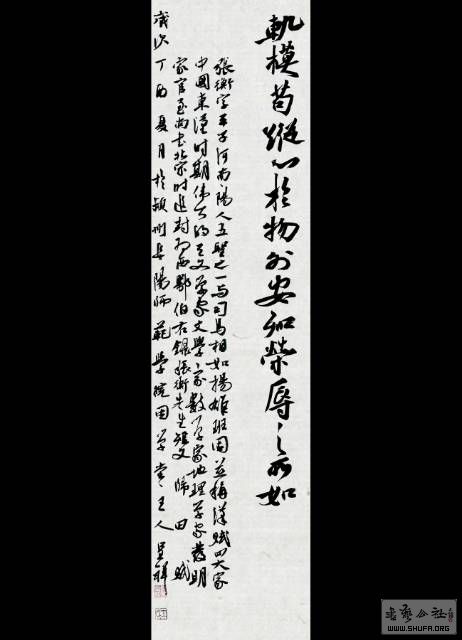 軌模苟縱心於物外安知榮辱之所如
張衡字平子河南々陽人五聖之一與司馬相如揚雄班固並稱漢賦四大家
中國東漢時期偉大的天文學家文學家數學家地理學家發明
家官至尚書北宋時追封為西鄂伯右錄張衡先生短文歸田賦
歲次丁酉夏月於潁州阜陽師範學院國學堂主人呈祥
書法公社
WWW.SHUFA.ORG